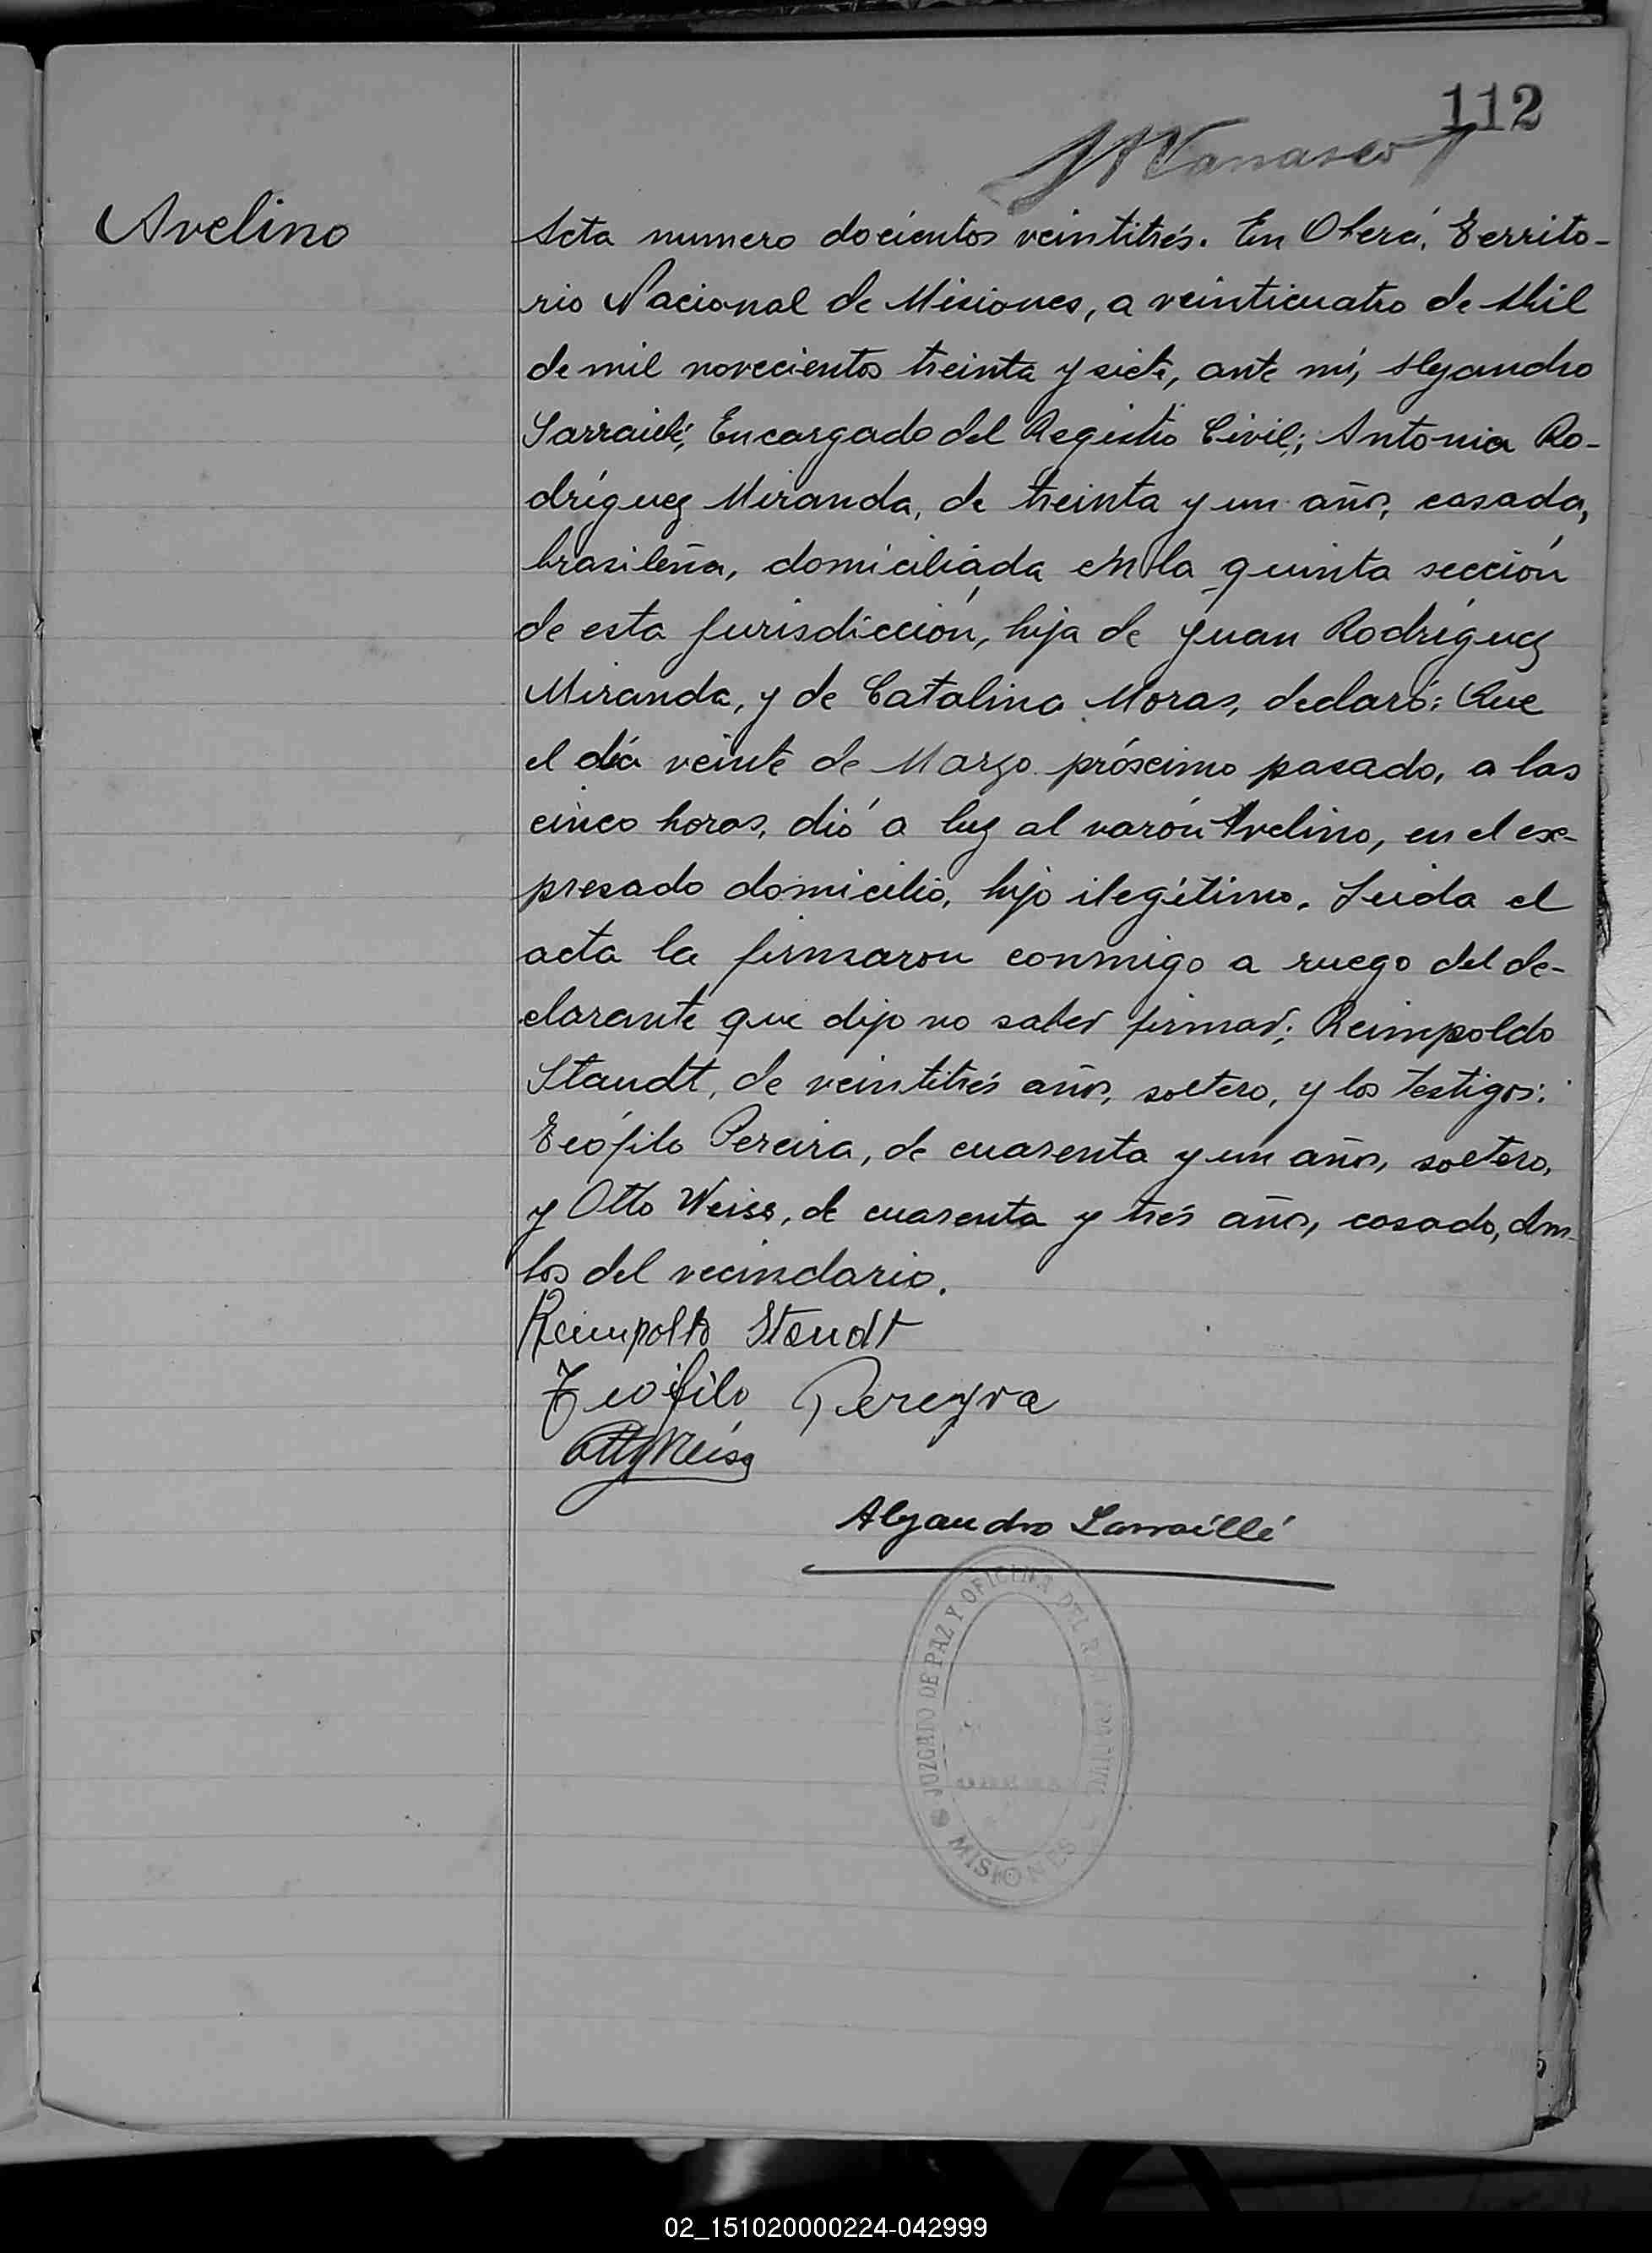 112
Avelino
Acta numero docientos veintitrés. En Oberá, Territo-
rio Nacional de Misiones, a veinticuatro de Abril
de mil novecientos treinta y siete, ante mí, Alejandro
Larraillé, Encargado del Registro Civil; Antonia Ro-
dríguez Miranda, de treinta y un años, casada,
brasileña, domiciliada en la quinta sección
de esta jurisdicción, hija de Juan Rodríguez
Miranda, y de Catalina Moras, declaró: Que
el día veinte de Marzo próximo pasado, a las
cinco horas, dió a luz al varón Avelino, en el ex-
presado domicilio, hijo ilegítimo. Leida el
acta la firmaron conmigo a ruego del de-
clarante que dijo no saber firmar; Reimpoldo
Staudt, de veintitrés años, soltero, y los testigos:
Teófilo Pereira, de cuarenta y un años, soltero,
y Otto Weiss, de cuarenta y trés años, casado, Am-
bos del vecindario.
Reimpolto Staudt
Teofilo Pereyra
Otto Weiss
Alejandro Larraillé
JUZGADO DE PAZ Y OFICINA DEL
MISIONES
02_151020000224-042999